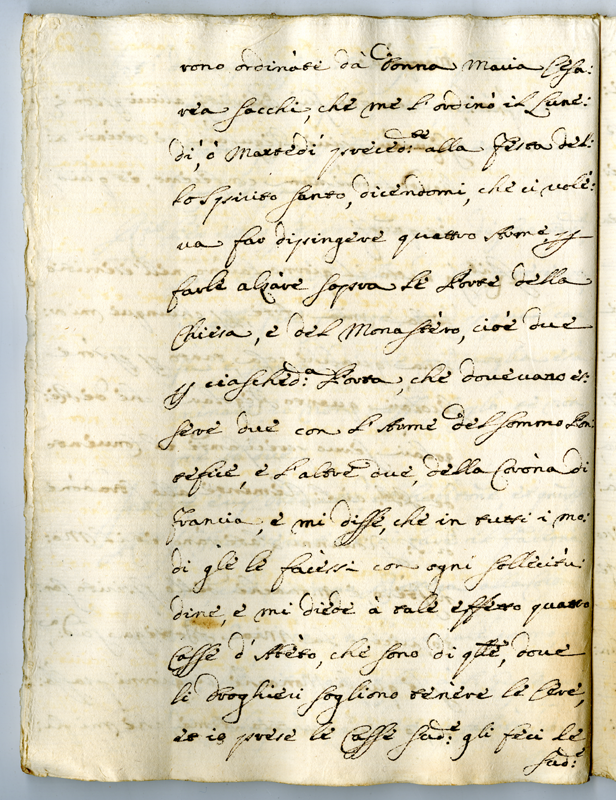 rono ordinate dà Donna Maria Cesa:
rea Sacchi, che me l'ordinò il Lune:
dì, ò Martedì preced:te alla Festa del:
lo Spirito Santo, dicendomi, che ci volé:
va far dipingere quattro Arme,
farle alzàre sopra le Porte della
Chiesa, e del Monastèro, cioè due
ciasched:a Porta, che dovevano es:
sere due con l'Arme del Sommo Pon:
tefice, e l'altre due, della Coròna di
Francia, e mi disse, che in tutti i mo:
di gle le facèssi con ogni sollecitu:
dine, e mi diede à tale effetto quattro
Casse d'Abèto, che sono di qlle, dove
li droghieri sogliono tenere le Cere,
et io prese le Casse sud:e gli feci le
sud:e